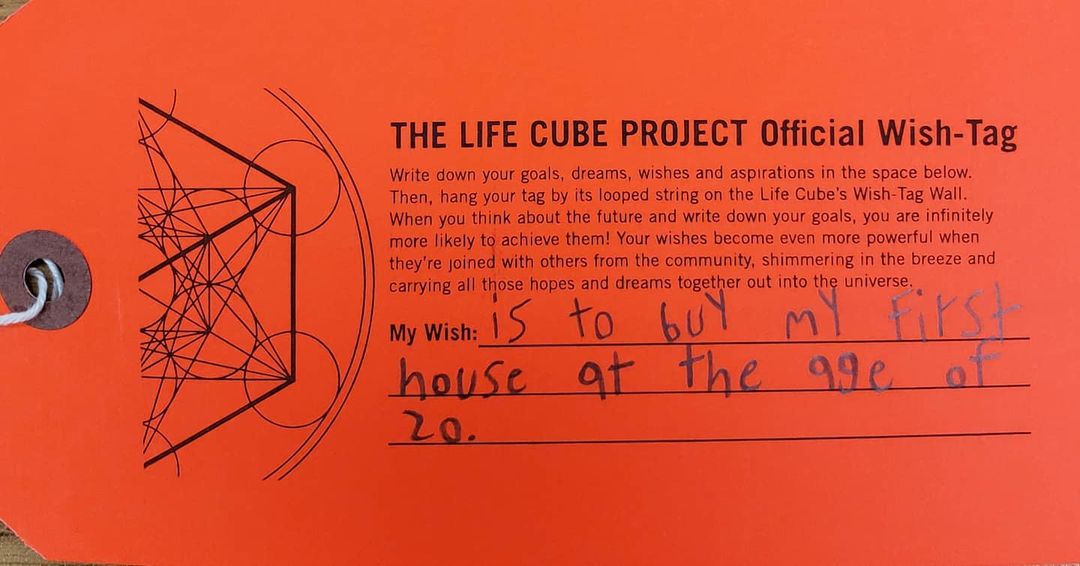 THE LIFE CUBE PROJECT Official Wish-Tag
Write down your goals, dreams, wishes and aspirations in the space below.
Then, hang your tag by its looped string on the Life Cube's Wish-Tag Wall.
When you think about the future and write down your goals, you are infinitely
more likely to achieve them! Your wishes become even more powerful when
they're joined with others from the community, shimmering in the breeze and
carrying all those hopes and dreams together out into the universe.
My Wish: is to buy my first
house at the age of
20.